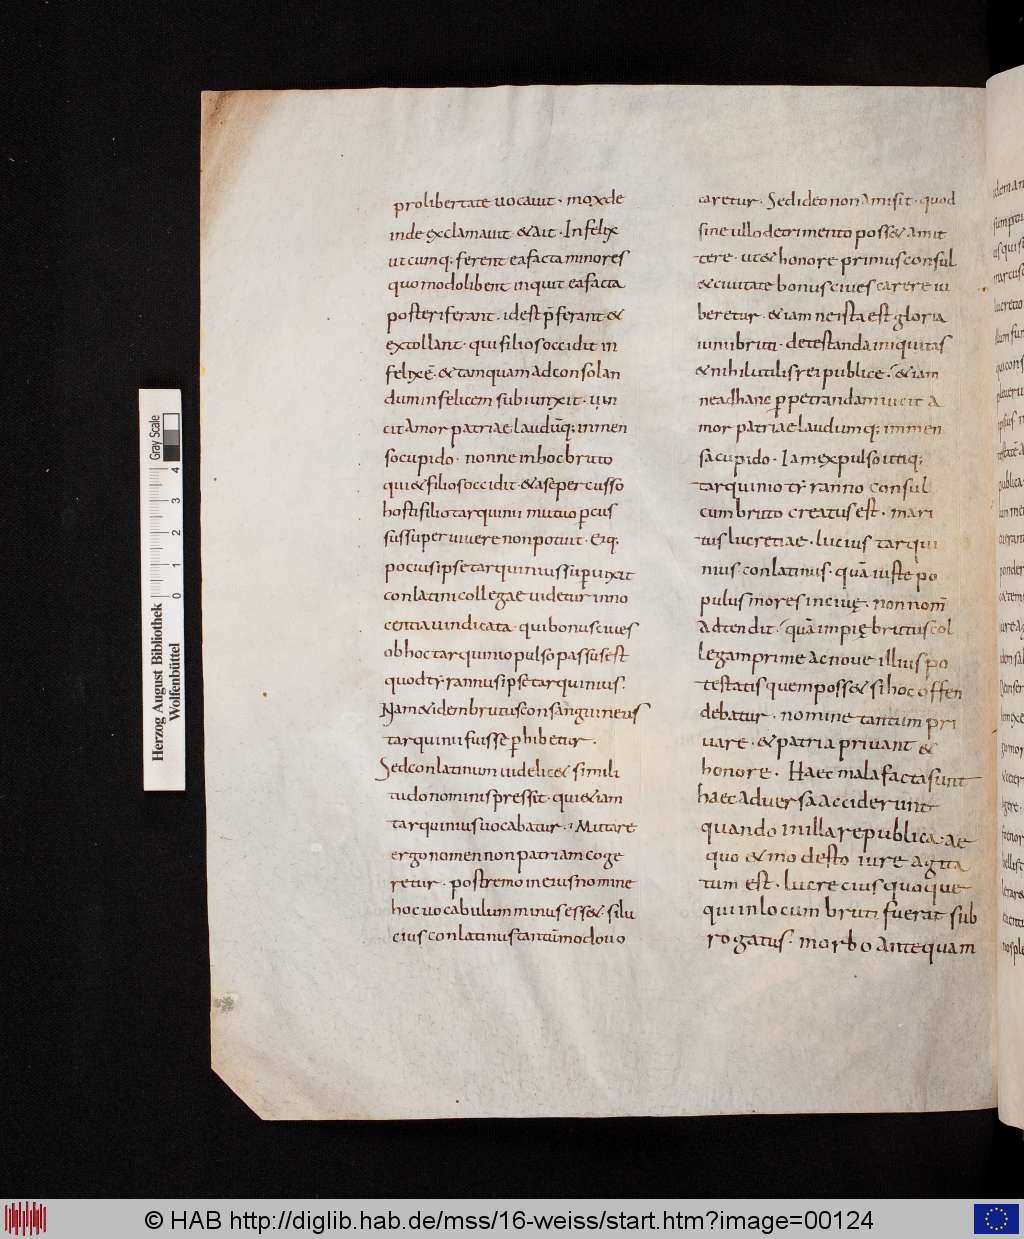 pro libertate uocauit · mox de
inde exclamauit · & ait · Infelix
utcumq; ferent ea facta minores
quomodolibent inquit ea facta
posteri ferant · id est p̄ferant &
extollant · qui filios occidit in
felix ē · & tamquam ad consolan
dum infelicem subiunxit · uin
cit amor patriae laudūq; inmen
sa cupido · nonne in hoc bruto
qui & filios occidit · & a se percusso
hosti filio tarquinii mutuo ꝑcus
sus superuiuere non potuit · eiq;
po cui ipse tarquinius suꝑuixit
conlatini collegae uidetur inno
centia uindicata · qui bonus ciues
ob hoc tarquinio pulso passus est
quod tyrannus ipse tarquinius ·
Nam & idem brutus consanguineus
tarquinii fuisse ꝑhibetur ·
Sed conlatinum uidelic& simili
tudo nominis pressit · quia &iam
tarquinius uocabatur · Mutare
ergo nomen non patriam coge
retur · postremo in eius nomine
hoc uocabulum minus ess& · si lu
cius conlatinus tantūmodo uo
caretur · Sed ideo non amisit · quod
sine ullo detrimento poss& amit
tere · ut & honore primus consul
& ciuitate bonus ciues carere iu
beretur · &iam ne ista est gloria
iuni bruti · detestanda iniquitas
& nihil utilis rei publice · &iam
ne ad hanc ꝑpetrandam uicit a
mor patriae laudumq; inmen
sa cupido · Iam expulso itaq;
tarquinio tyranno consul
cum bruto creatus est · mari
tus lucretiae · lucius tarqui
nius · conlatinus · quā iuste po
pulus mores in ciuę · non nom̄
adtendit · quā impię brutus col
legam prime ac noue illius po
testatis quem poss& si hoc offen
debatur · nomine tantum pri
uare · & patria priuant &
honore · Haec mala facta sunt
haec aduersa acciderunt
quando in illa republica · ae
quo & modesto iure agita
tum est · lucrecius quoque
qui in locum bruti fuerat sub
rogatus · morbo antequam
Herzog August Bibliothek
Wolfenbüttel
0 1 2 3 4
Gray Scale
© HAB http://diglib.hab.de/mss/16-weiss/start.htm?image=00124